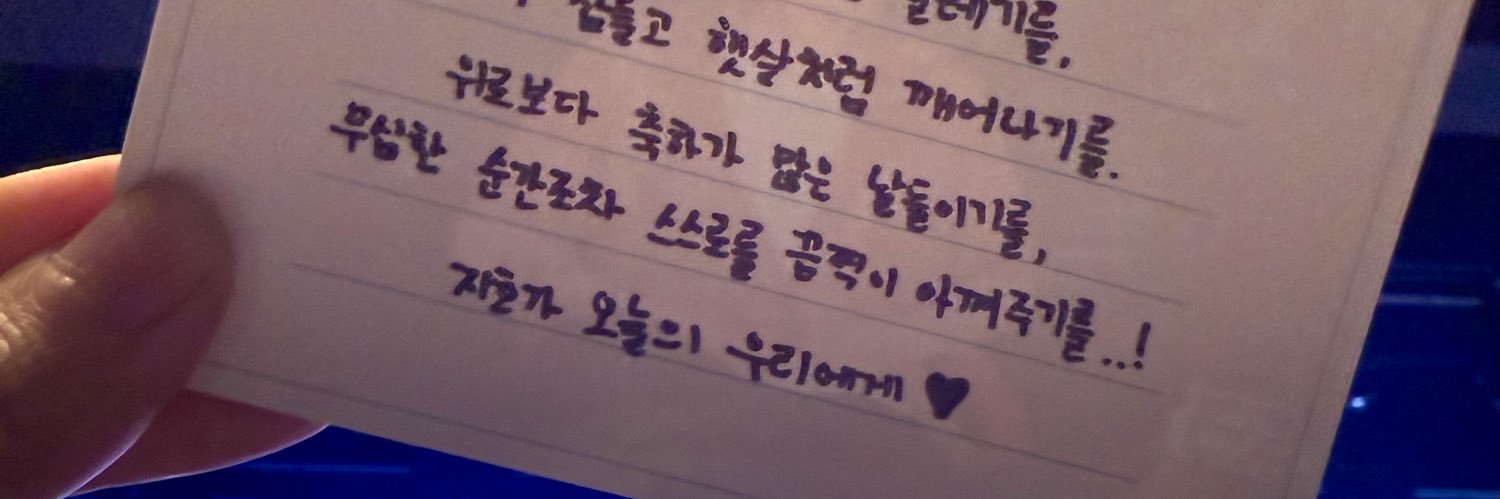 잠들고 햇살처럼 깨어나기를.
위로보다 축하가 많은 날들이기를,
무심한 순간조차 스스로를 끔찍이 아껴주기를..!
지호가 오늘의 우리에게 ♥